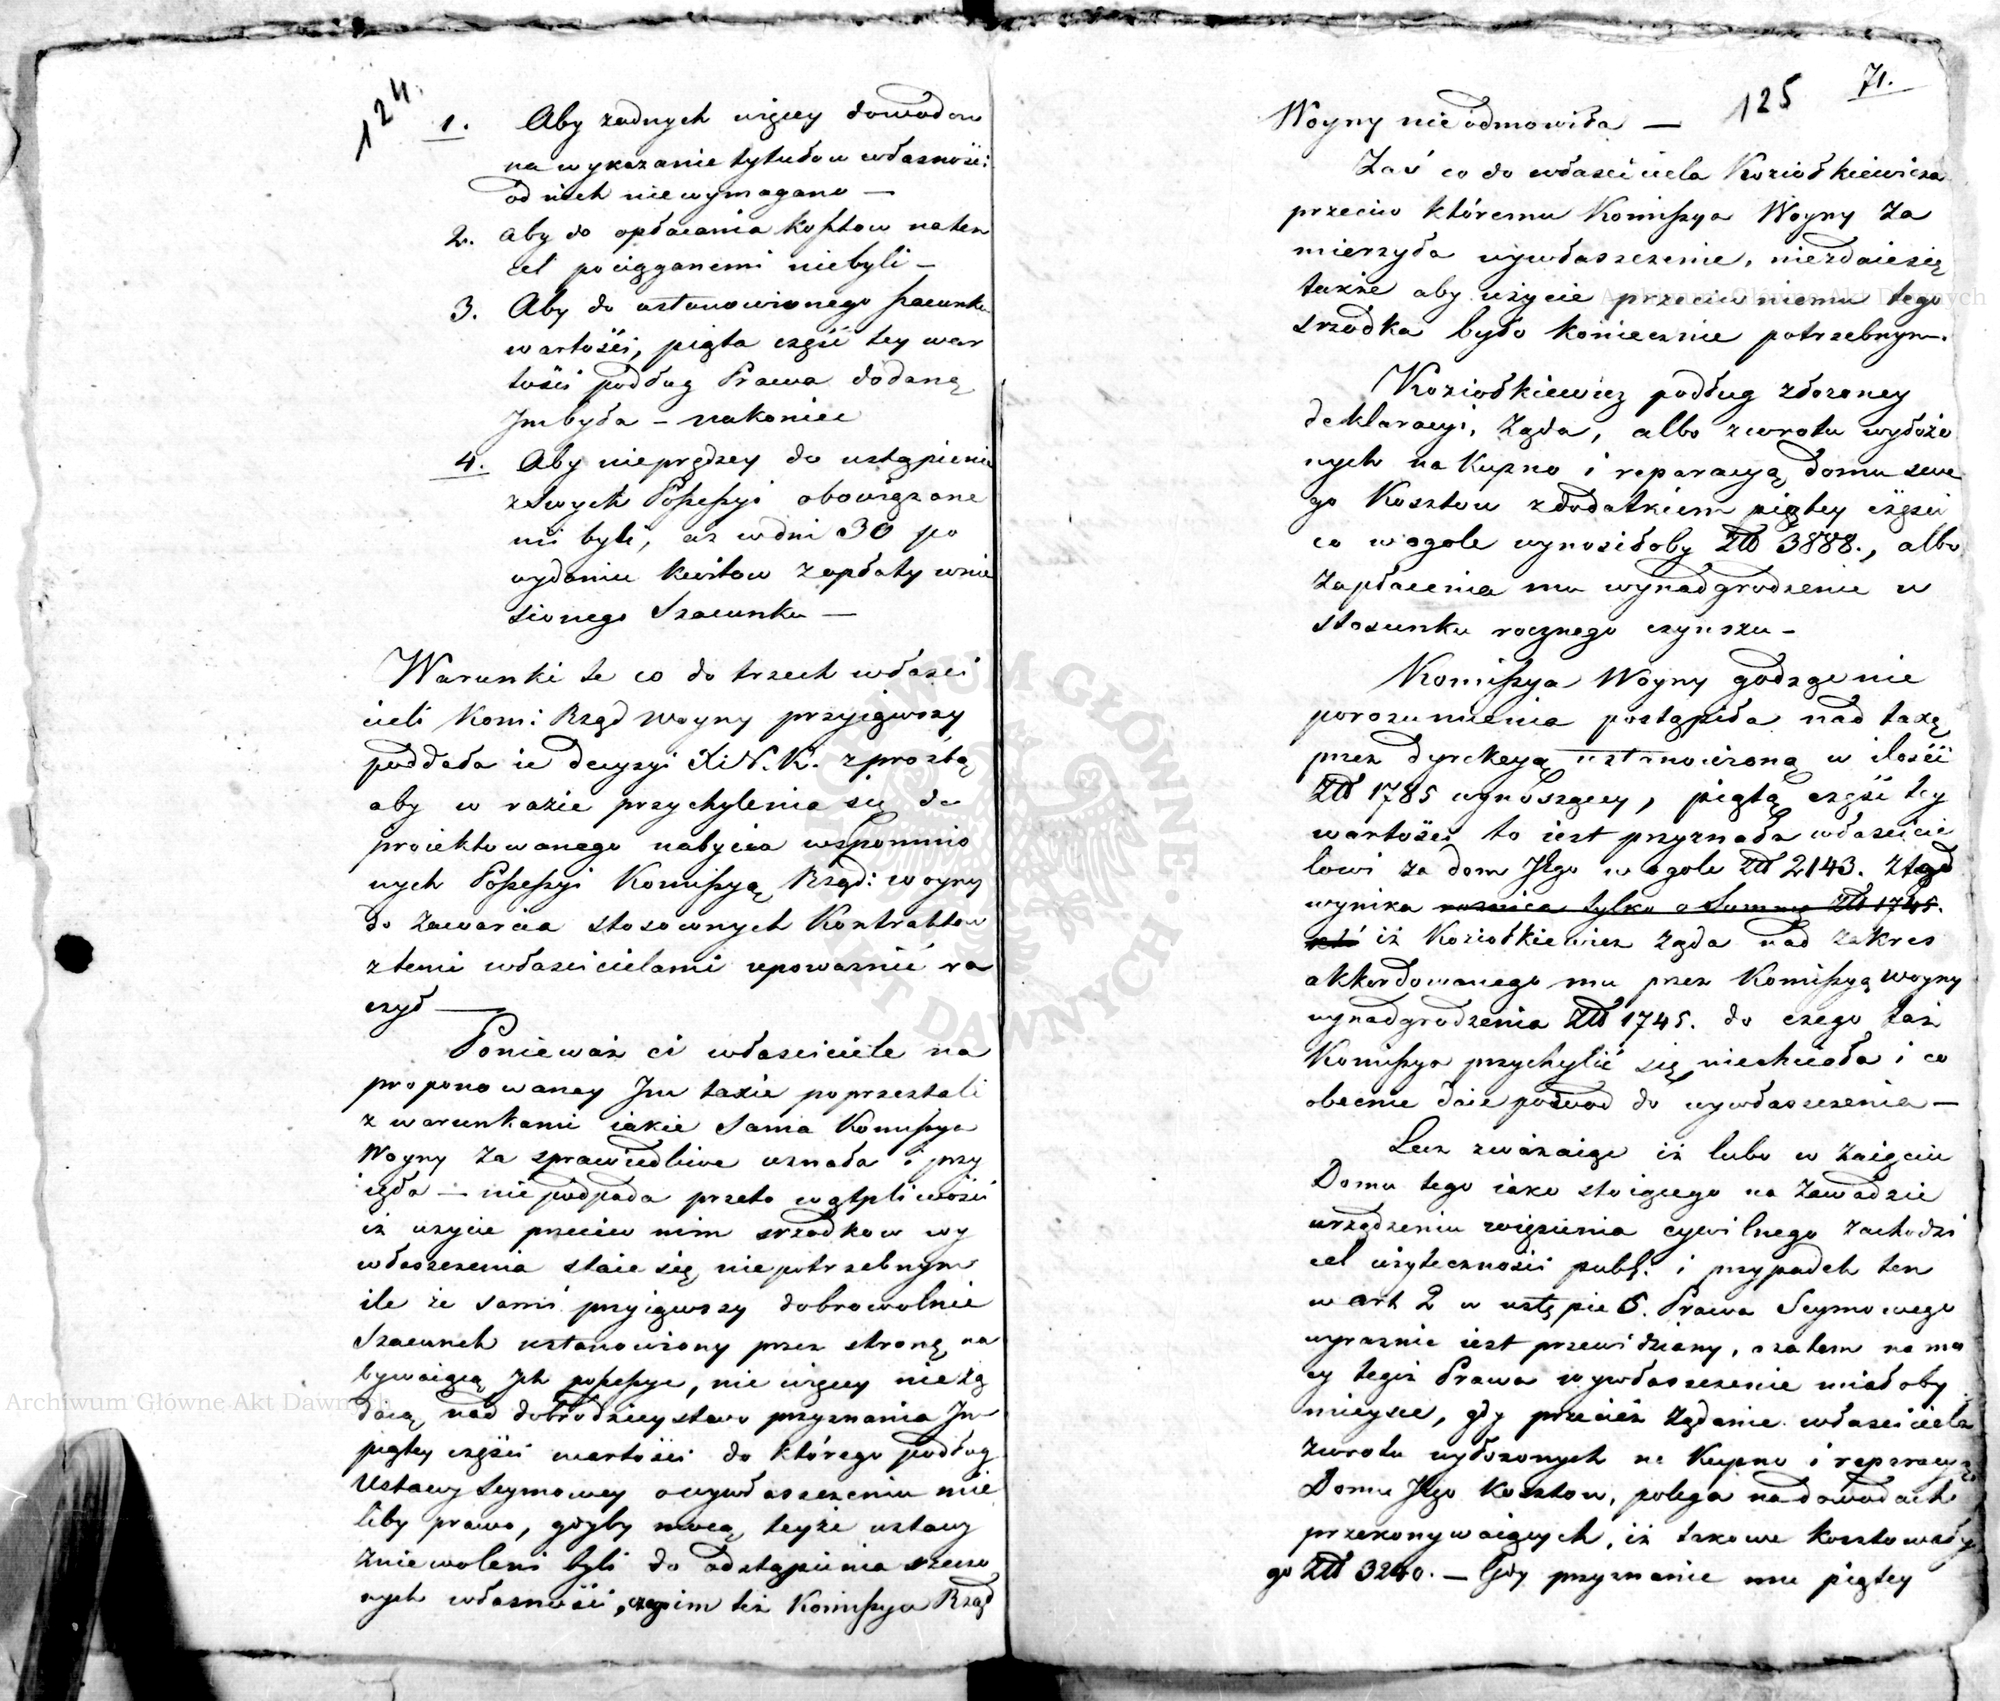 124.
1. Aby żadnych więcey dowodow
na wykazanie tytułow własnośći
od nich niewymagano —
2. Aby do opłacania kosztow na ten
cel pociągganemi niebyli —
3. Aby do ustanowionego szacunku
wartośći, piąta część tey war
tośći podług Prawa dodaną
Im była – nakoniec
4. Aby nieprędzey do ustąpienia
z swych Possessyi obowiązane
mi byli, aż w dni 30 po
wydaniu kwitow z opłaty wnie
sionego Szacunku —
Warunki te co do trzech właści
cieli Kom: Rząd Woyny przyiąwszy
poddała ie decyzyi X i N. K. z prozbą
aby w razie przychylenia się do
proiektowanego nabycia wspomnio
nych Possessyi Kommissyą Rząd: woyny
do zawarcia stosownych Kontraktow
z temi właścicielami upoważnić ra
czył —
Ponieważ ci właściciele na
proponowaney Im taxie poprzestali
z warunkami iakie sama Kommissya
Woyny za sprawiedliwe uznała i przy
ięła — nie podpada przeto wątpliwośći
iż użycie przeciw nim srzodkow wy
właszczenia staie się niepotrzebnym
ile że sami przyiąwszy dobrowolnie
Szacunek ustanowiony przez stronę na
bywaiącą Ich possessye, nic więcey nieżą
daią nad dobrodzieystwo przyznania Im
piątey części wartośći do którego podług
Ustawy Seymowey o wywłaszczeniu mie
liby prawo, gdyby mocą teyże ustawy
zniewoleni byli do odstąpienia rzeczo
nych własnośći, czego im też Kommissya Rząd
125
71.
Woyny nie odmowiła —
Zaś co do właściciela Koziołkiewicza
przeciw któremu Komissya Woyny za
mierzyła wywłaszczenie, niezdaie się
także aby użycie przeciw niemu tego
srzodka było koniecznie potrzebnym.
Koziołkiewicz podług złożoney
deklaracyi, żąda, albo zwrotu wyłożo
nych na kupno i reparacyą domu swe
go Kosztow z dodatkiem piątey części
co w ogole wynosiłoby Złł 3888., albo
zapłacenia mu wynadgrodzenie w
stosunku rocznego czynszu –
Komissya Woyny godząc nie
porozumienia postąpiła nad taxę
przez Dyrekcyą ustanowioną w ilości
Złł 1785 wynoszącey, piątą część tey
wartości to iest przyznała właścicie
lowi za dom Jego w ogole Złł 2143. Ztąd
wynika roznica tylko o Summę Złł 1745.
iż Koziołkiewicz żąda nad zakres
akkordowanego mu przez Komissyą woyny
wynadgrodzenia Złł 1745. do czego taż
Komissya przychylić się niechciała i co
obecnie daie powod do wywłaszczenia —
Lecz zważaiąc iż lubo w zaięciu
Domu tego iako stoiącego na zawadzie
urządzeniu więzienia cywilnego zachodzi
cel użyteczności publ: i przypadek ten
w art 2 w ustępie 6. Prawa Seymowego
wyraznie iest przewidziany, a zatem na mo
cy tegoż Prawa wywłaszczenie miałoby
mieysce, gdy przecież żądanie właściciela
zwrotu wyłożonych na kupno i reparacyą
Domu Jego kosztow, polega na dowodach
przekonywaiących, iż takowe kosztowały
go Złł 3240. — Gdy przyznanie mu piątey
Archiwum Główne Akt Dawnych
Archiwum Główne Akt Dawnych
ARCHIWUM GŁÓWNE AKT DAWNYCH